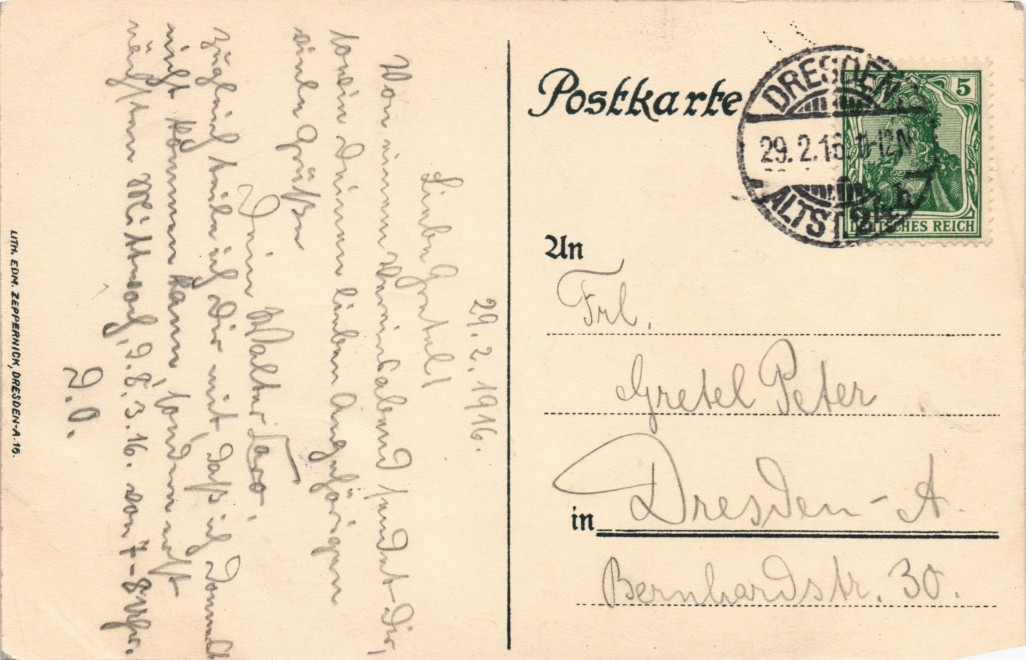 29.2.1916.
Liebe Gretel!
Von einem Vereinsabend sendet Dir,
sowie Deinen lieben Angehörigen
viele Grüße
Dein Walter
Zugleich teile ich Dir mit, daß ich Donnerst
nicht kommen kann, sondern erst
nächsten Mittwoch, d. 8.3.16. von 7-8 Uhr.
D.O.
LITH. EDM. ZEPPERNICK, DRESDEN-A.16.
Postkarte
DRESDEN
29.2.16 11-12N
ALTST. 24
5
DEUTSCHES REICH
An
Frl.
Gretel Peter
in Dresden-A.
Bernhardstr. 30.